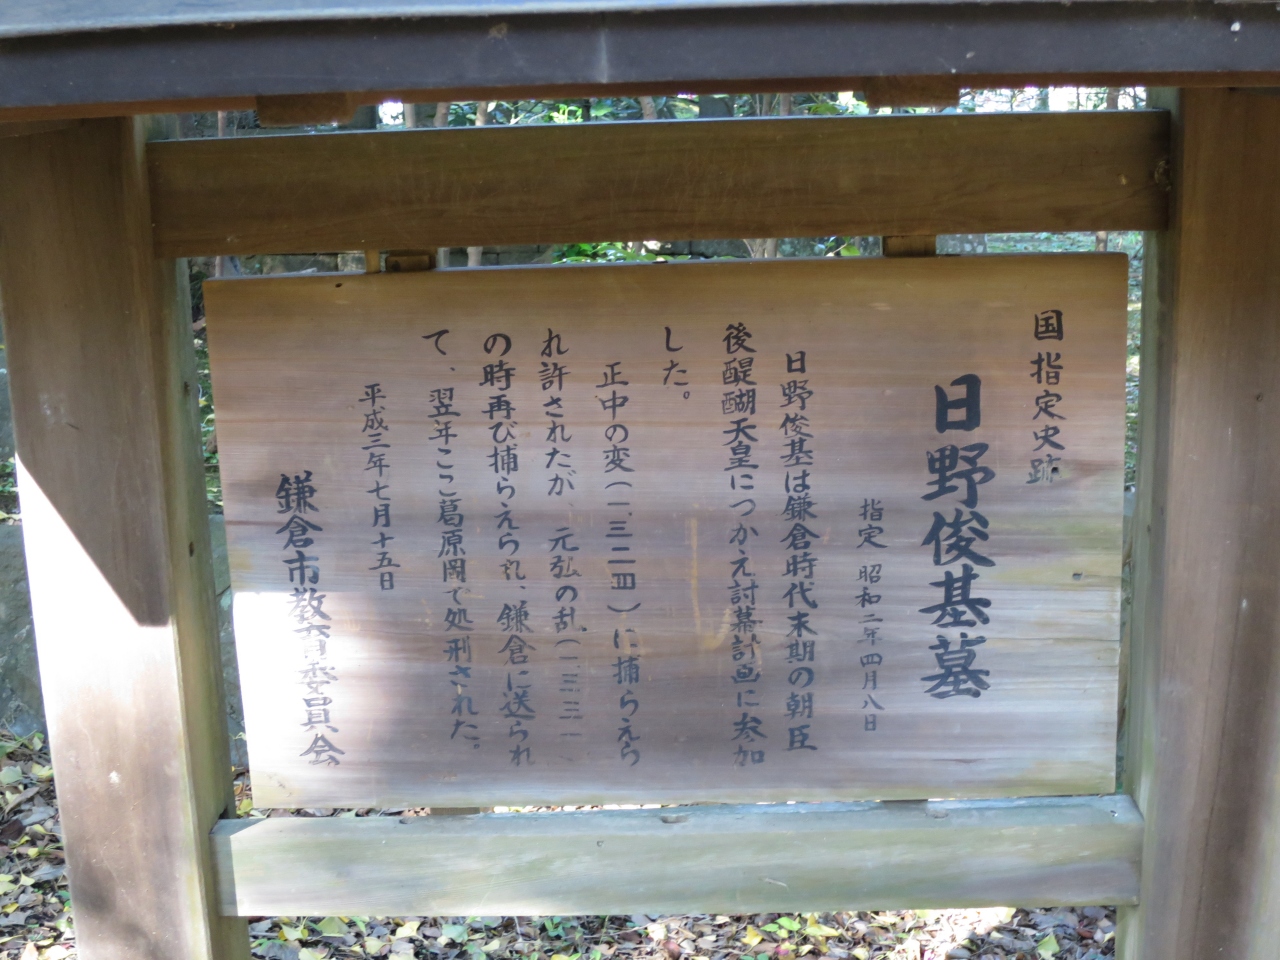 国指定史跡
日野俊基墓
指定 昭和二年四月八日
日野俊基は鎌倉時代末期の朝臣
後醍醐天皇につかえ討幕計画に参加
した。
正中の変(一三二四)に捕らえら
れ許されたが、元弘の乱(一三三一
の時再び捕らえられ、鎌倉に送られ
て、翌年ここ葛原岡で処刑された。
平成三年七月十五日
鎌倉市教育委員会